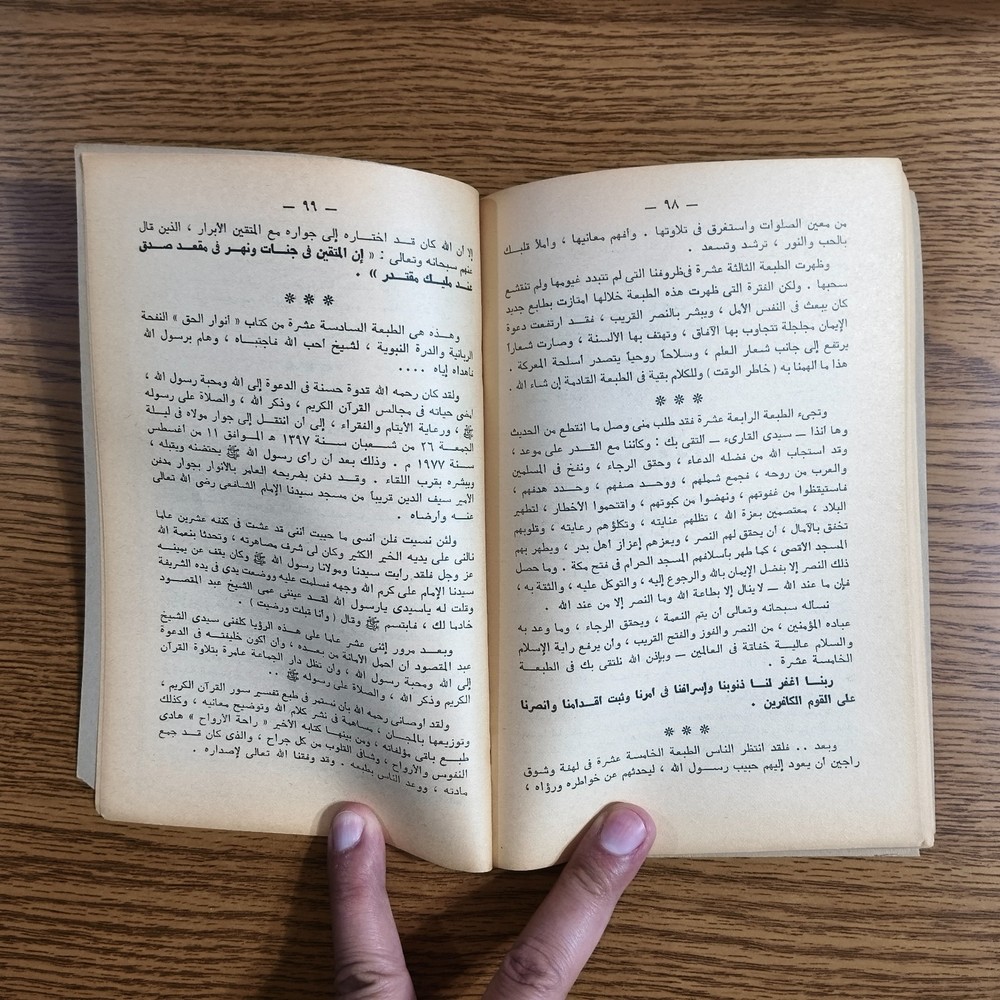 — ٩٨ —
من معين الصلوات واستغرق فى تلاوتها . وافهم معانيها ، واملأ قلبك
بالحب والنور ، ترشد وتسعد .
وظهرت الطبعة الثالثة عشرة فى ظروفنا التى لم تتبدد غيومها ولم تنقشع
سحبها . ولكن الفترة التى ظهرت هذه الطبعة خلالها امتازت بطابع جديد
كان يبعث فى النفس الأمل ، ويبشر بالنصر القريب ، فقد ارتفعت دعوة
الإيمان مجلجلة تتجاوب بها الآفاق ، وتهتف بها الألسنة ، وصارت شعاراً
يرتفع إلى جانب شعار العلم ، وسلاحاً روحياً يتصدر اسلحة المعركة .
هذا ما الهمنا به ( خاطر الوقت ) وللكلام بقية فى الطبعة القادمة إن شاء الله .
❊ ❊ ❊
وتجىء الطبعة الرابعة عشرة فقد طلب منى وصل ما انقطع من الحديث
وها انذا — سيدى القارىء — التقى بك : وكأننا مع القدر على موعد ،
وقد استجاب الله من فضله الدعاء ، وحقق الرجاء ، ونفخ فى المسلمين
والعرب من روحه ، فجمع شملهم ، ووحد صفهم ، وحدد هدفهم ،
فاستيقظوا من غفوتهم ، ونهضوا من كبوتهم ، واقتحموا الأخطار ، لتطهير
البلاد ، معتصمين بعزة الله ، تظلهم عنايته ، وتكلؤهم رعايته ، وقلوبهم
تخفق بالآمال ، أن يحقق لهم النصر ، ويعزهم إعزاز أهل بدر ، ويطهر بهم
المسجد الأقصى ، كما طهر بأسلافهم المسجد الحرام فى فتح مكة . وما حصل
ذلك النصر إلا بفضل الإيمان بالله والرجوع إليه ، والتوكل عليه ، والثقة به ،
فإن ما عند الله — لا ينال إلا بطاعة الله وما النصر إلا من عند الله .
نسأله سبحانه وتعالى أن يتم النعمة ، ويحقق الرجاء ، وما وعد به
عباده المؤمنين ، من النصر والفوز والفتح القريب ، وان يرفع راية الإسلام
والسلام عالية خفاقة فى العالمين — وبإذن الله نلتقى بك فى الطبعة
الخامسة عشرة .
ربنا اغفر لنا ذنوبنا وإسرافنا فى امرنا وثبت اقدامنا وانصرنا
على القوم الكافرين .
❊ ❊ ❊
وبعد .. فلقد انتظر الناس الطبعة الخامسة عشرة فى لهفة وشوق
راجين ان يعود إليهم حبيب رسول الله ، ليحدثهم عن خواطره ورؤاه ،
— ٩٩ —
إلا أن الله كان قد اختاره إلى جواره مع المتقين الأبرار ، الذين قال
عنهم سبحانه وتعالى : « إن المتقين فى جنات ونهر فى مقعد صدق
عند مليك مقتدر » .
❊ ❊ ❊
وهذه هى الطبعة السادسة عشرة من كتاب « انوار الحق » النفحة
الربانية والدرة النبوية ، لشيخ احب الله فاجتباه ، وهام برسول الله
فأهداه إياه ....
ولقد كان رحمه الله قدوة حسنة فى الدعوة إلى الله ومحبة رسول الله ،
امضى حياته فى مجالس القرآن الكريم ، وذكر الله ، والصلاة على رسوله
ﷺ ، ورعاية الأيتام والفقراء ، إلى أن انتقل إلى جوار مولاه فى ليلة
الجمعة ٢٦ من شعبان سنة ١٣٩٧ هـ الموافق ١١ من اغسطس
سنة ١٩٧٧ م . وذلك بعد ان راى رسول الله ﷺ يحتضنه ويقبله ،
ويبشره بقرب اللقاء . وقد دفن بضريحه العامر بالأنوار بجوار مدفن
الأمير سيف الدين قريباً من مسجد سيدنا الإمام الشافعى رضى الله تعالى
عنه وأرضاه .
ولئن نسيت فلن أنسى ما حييت أننى قد عشت فى كنفه عشرين عاما
نالنى على يديه الخير الكثير وكان لى شرف مصاهرته ، وتحدثا بنعمة الله
عز وجل فلقد رأيت سيدنا ومولانا رسول الله ﷺ وكان يقف عن يمينه
سيدنا الإمام على كرم الله وجهه فسلمت عليه ووضعت يدى فى يده الشريفة
وقلت له ياسيدى يارسول الله لقد عيننى عمى الشيخ عبد المقصود
خادما لك ، فابتسم ﷺ وقال ( وأنا قبلت ورضيت ) .
وبعد مرور إثنى عشر عاما على هذه الرؤيا كلفنى سيدى الشيخ
عبد المقصود ان احمل الأمانة من بعده ، وان اكون خليفته فى الدعوة
إلى الله ومحبة رسول الله ، وان تظل دار الجماعة عامرة بتلاوة القرآن
الكريم وذكر الله ، والصلاة على رسوله ﷺ ..
ولقد اوصانى رحمه الله بأن نستمر فى طبع تفسير سور القرآن الكريم ،
وتوزيعها بالمجان ، مساهمة فى نشر كلام الله وتوضيح معانيه ، وكذلك
طبع باقى مؤلفاته ، ومن بينها كتابه الأخير « راحة الأرواح » هادى
النفوس والأرواح ، وشافى القلوب من كل جراح ، والذى كان قد جمع
مادته ، ووعد الناس بطبعه . وقد وفقنا الله تعالى لإصداره .